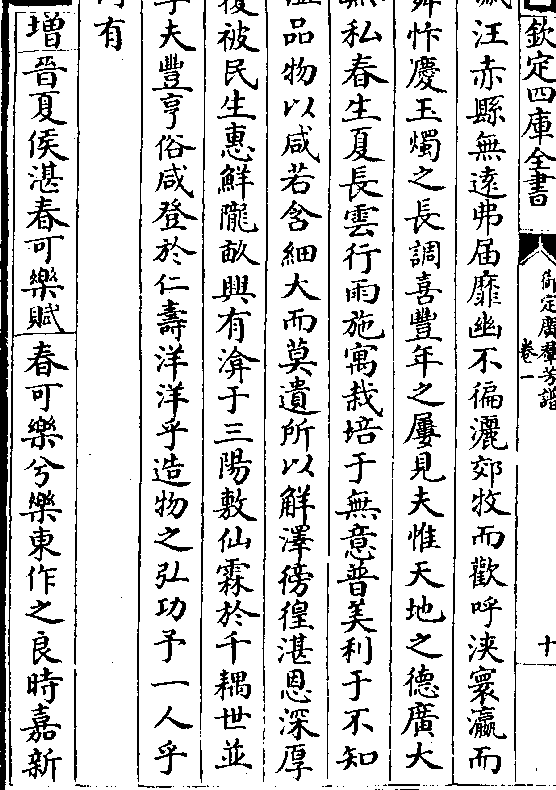 欽定四庫全書
御定廣羣芳譜
卷一
十
汪赤縣無遠弗届靡幽不徧灑郊牧而歡呼浹寰瀛而
忭慶玉燭之長調喜豐年之屢見夫惟天地之德廣大
私春生夏長雲行雨施寓栽培于無意普美利于不知
品物以咸若含細大而莫遺所以解澤徬徨湛恩深厚
被民生惠鮮隴畝興有渰于三陽敷仙霖於千耦世並
夫豐亨俗咸登於仁壽洋洋乎造物之弘功予一人乎
有
增晉夏侯湛春可樂賦 春可樂兮樂東作之良時嘉新